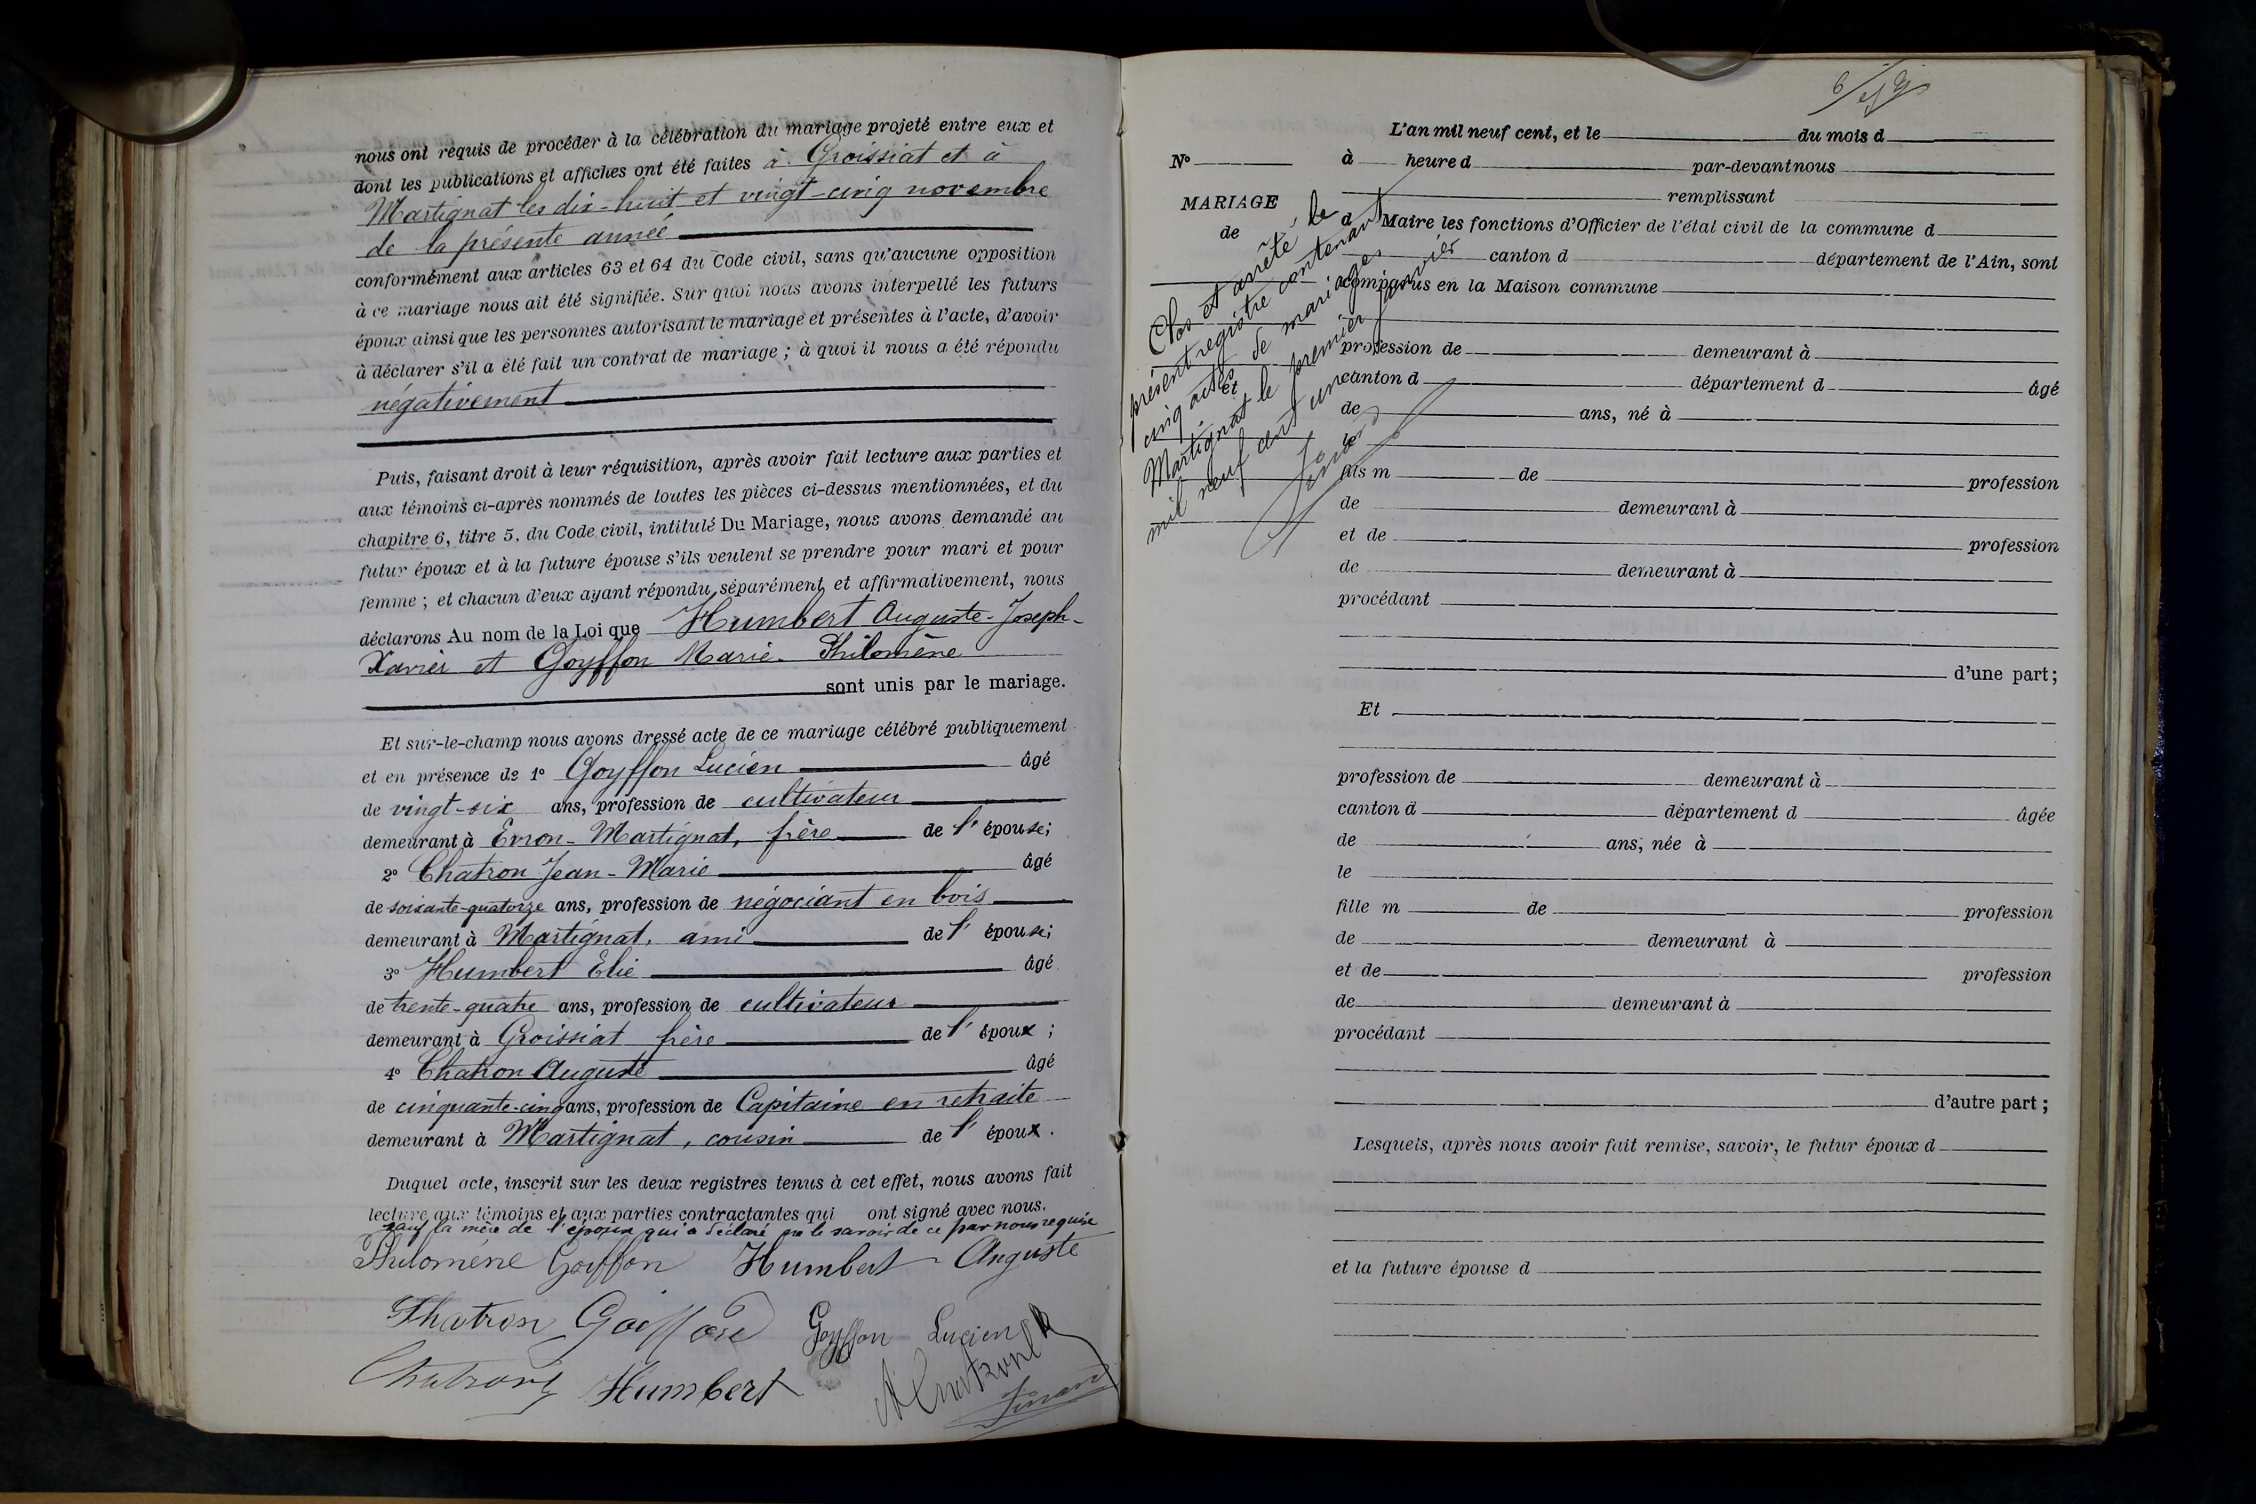 nous ont requis de procéder à la célébration du mariage projeté entre eux et
dont les publications et affiches ont été faites à Groissiat et à
Martignat les dix-huit et vingt-cinq novembre
de la présente année
conformément aux articles 63 et 64 du Code civil, sans qu'aucune opposition
à ce mariage nous ait été signifiée. Sur quoi nous avons interpellé les futurs
époux ainsi que les personnes autorisant le mariage et présentes à l'acte, d'avoir
à déclarer s'il a été fait un contrat de mariage ; à quoi il nous a été répondu
négativement
Puis, faisant droit à leur réquisition, après avoir fait lecture aux parties et
aux témoins ci-après nommés de toutes les pièces ci-dessus mentionnées, et du
chapitre 6, titre 5, du Code civil, intitulé Du Mariage, nous avons demandé au
futur époux et à la future épouse s'ils veulent se prendre pour mari et pour
femme ; et chacun d'eux ayant répondu séparément et affirmativement, nous
déclarons Au nom de la Loi que Humbert Auguste-Joseph-
Xavier et Goyffon Marie-Philomène
sont unis par le mariage.
Et sur-le-champ nous avons dressé acte de ce mariage célébré publiquement
et en présence de 1º Goyffon Lucien âgé
de vingt-six ans, profession de cultivateur
demeurant à Evron-Martignat, frère de l'épouse;
2º Chatron Jean-Marie âgé
de soixante-quatorze ans, profession de négociant en bois
demeurant à Martignat, ami de l'épouse;
3º Humbert Elie âgé
de trente-quatre ans, profession de cultivateur
demeurant à Groissiat frère de l'époux ;
4º Chatron Auguste âgé
de cinquante-cinq ans, profession de Capitaine en retraite
demeurant à Martignat, cousin de l'époux.
Duquel acte, inscrit sur les deux registres tenus à cet effet, nous avons fait
lecture aux témoins et aux parties contractantes qui ont signé avec nous.
sauf la mère de l'époux qui a déclaré ne le savoir de ce par nous requise
Philomène Goyffon Humbert Auguste
Chatron Goiffon Goyffon Lucien
Chatron Humbert A Chatron
Clos et arrêté, le
présent registre contenant
cinq actes de mariages
et
Martignat le premier janvier
mil neuf cent un
L'an mil neuf cent, et le du mois d
Nº à heure d par-devant nous
MARIAGE remplissant
de d Maire les fonctions d'Officier de l'état civil de la commune d
canton d département de l'Ain, sont
comparus en la Maison commune
profession de demeurant à
canton d département d âgé
de ans, né à
le
fils m de profession
de demeurant à
et de profession
de demeurant à
procédant
d'une part;
Et
profession de demeurant à
canton d département d âgée
de ans, née à
le
fille m de profession
de demeurant à
et de profession
de demeurant à
procédant
d'autre part ;
Lesquels, après nous avoir fait remise, savoir, le futur époux d
et la future épouse d